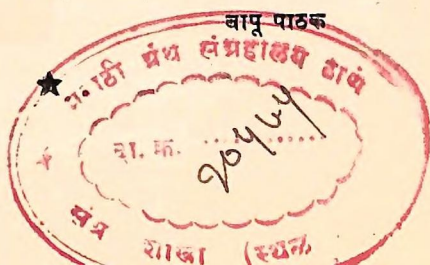 बापू पाठक
मराठी ग्रंथ संग्रहालय ठाणे
वा. क्र. ............
२०५५५
शाखा (स्थळ